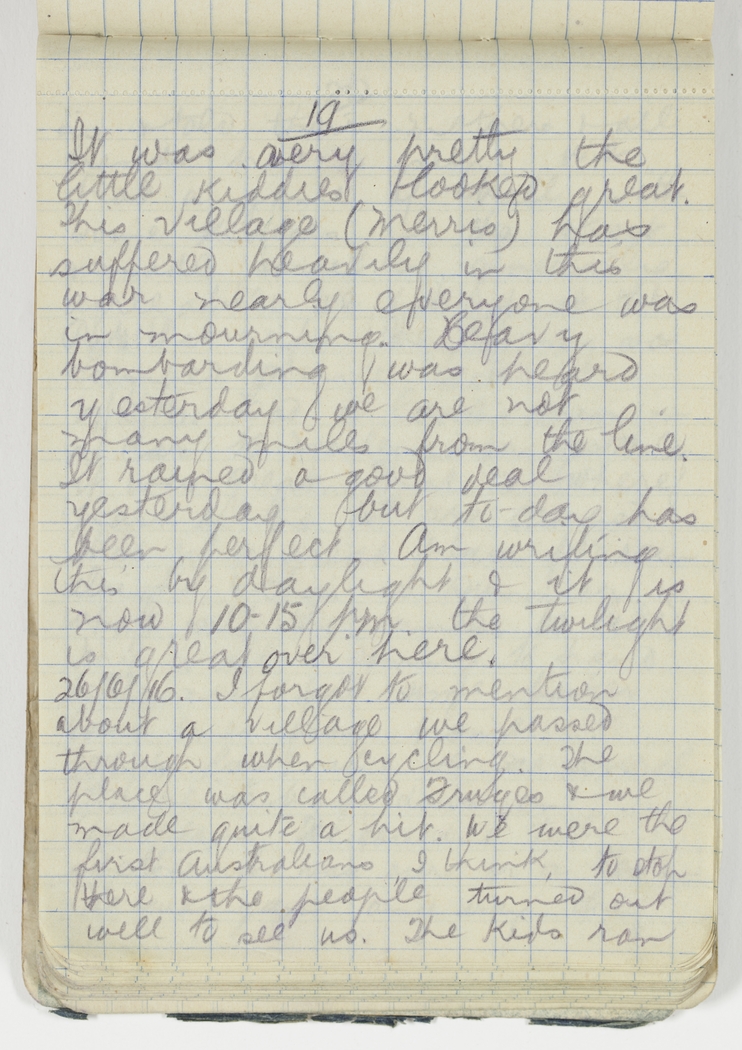 19
It was very pretty the
little kiddies looked great.
This village (Merris) has
suffered heavily in this
war nearly everyone was
in mourning. Heavy
bombarding was heard
yesterday we are not
many miles from the line.
It rained a good deal
yesterday but to-day has
been perfect Am writing
this by daylight & it is
now 10-15 pm the twilight
is great over here.
26/6/16. I forgot to mention
about a village we passed
through when cycling. The
place was called Fruges & we
made quite a hit. We were the
first Australians, I think, to stop
there & the people turned out
well to see us. The kids ran